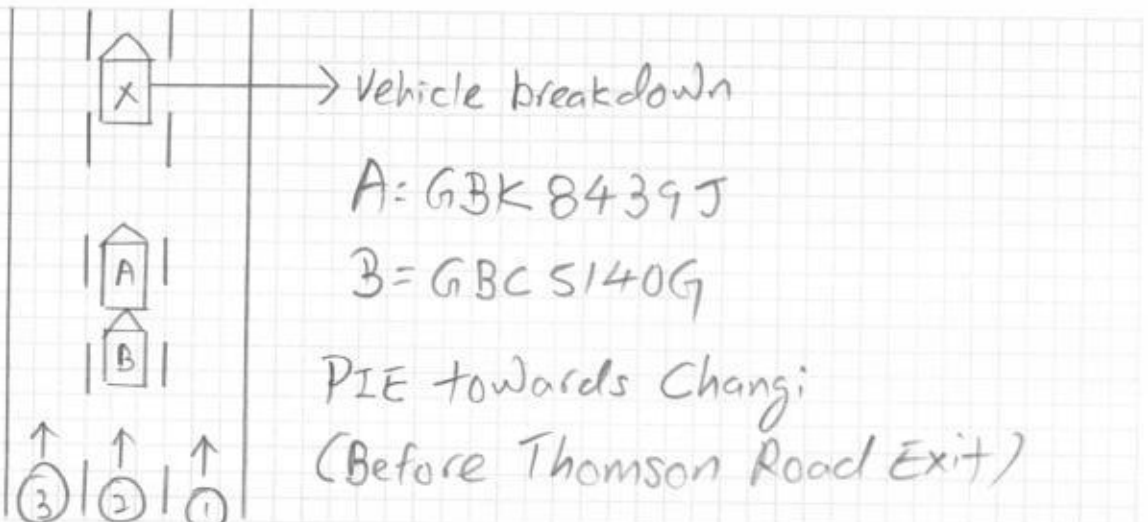 X
Vehicle breakdown
A: GBK 8439J
A
B = GBC 5140G
B
PIE towards Changi
(Before Thomson Road Exit)
3 2 1